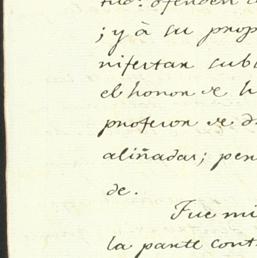 tud: ofenden
; y à su prop
nifestan sub
el honor de h
profesor de d
aliñadas; pen
de.
Fue mi
la parte cont